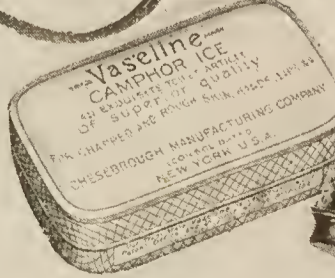 TRADE Vaseline MARK
CAMPHOR ICE
AN EXQUISITE TOILET ARTICLE
OF superior quality
FOR CHAPPED AND ROUGH SKIN, HANDS, LIPS, &c
CHESEBROUGH MANUFACTURING COMPANY
CONSOLIDATED
NEW YORK U.S.A.